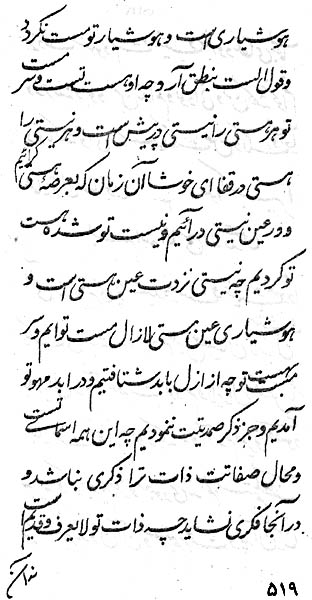 هوشیاری است و هوشیار تو مست نگردد
و قول الست بنطق آرد چه او هست تست و مست
تو هر هستی را نیستی در پیش است و هر نیستی را
هستی در قفا ای خوشا آن زمان که بعرصهٔ هستی آئیم
و در عین نیستی در آئیم و نیست تو شده هست
تو گردیم چه نیستی نزدت عین هستی است و
هوشیاری عین مستی لازال مست توایم و سر
مست تو چه از ازل بابد شتافتیم و در ابد مهو تو
آمدیم و جز ذکر صمدیتت ننمودیم چه این همه اسمائست
و محال صفاتت ذات ترا ذکری نباشد و
در آنجا فکری نشاید چه ذات تو لا یعرف و قدیم است
۵۱۹